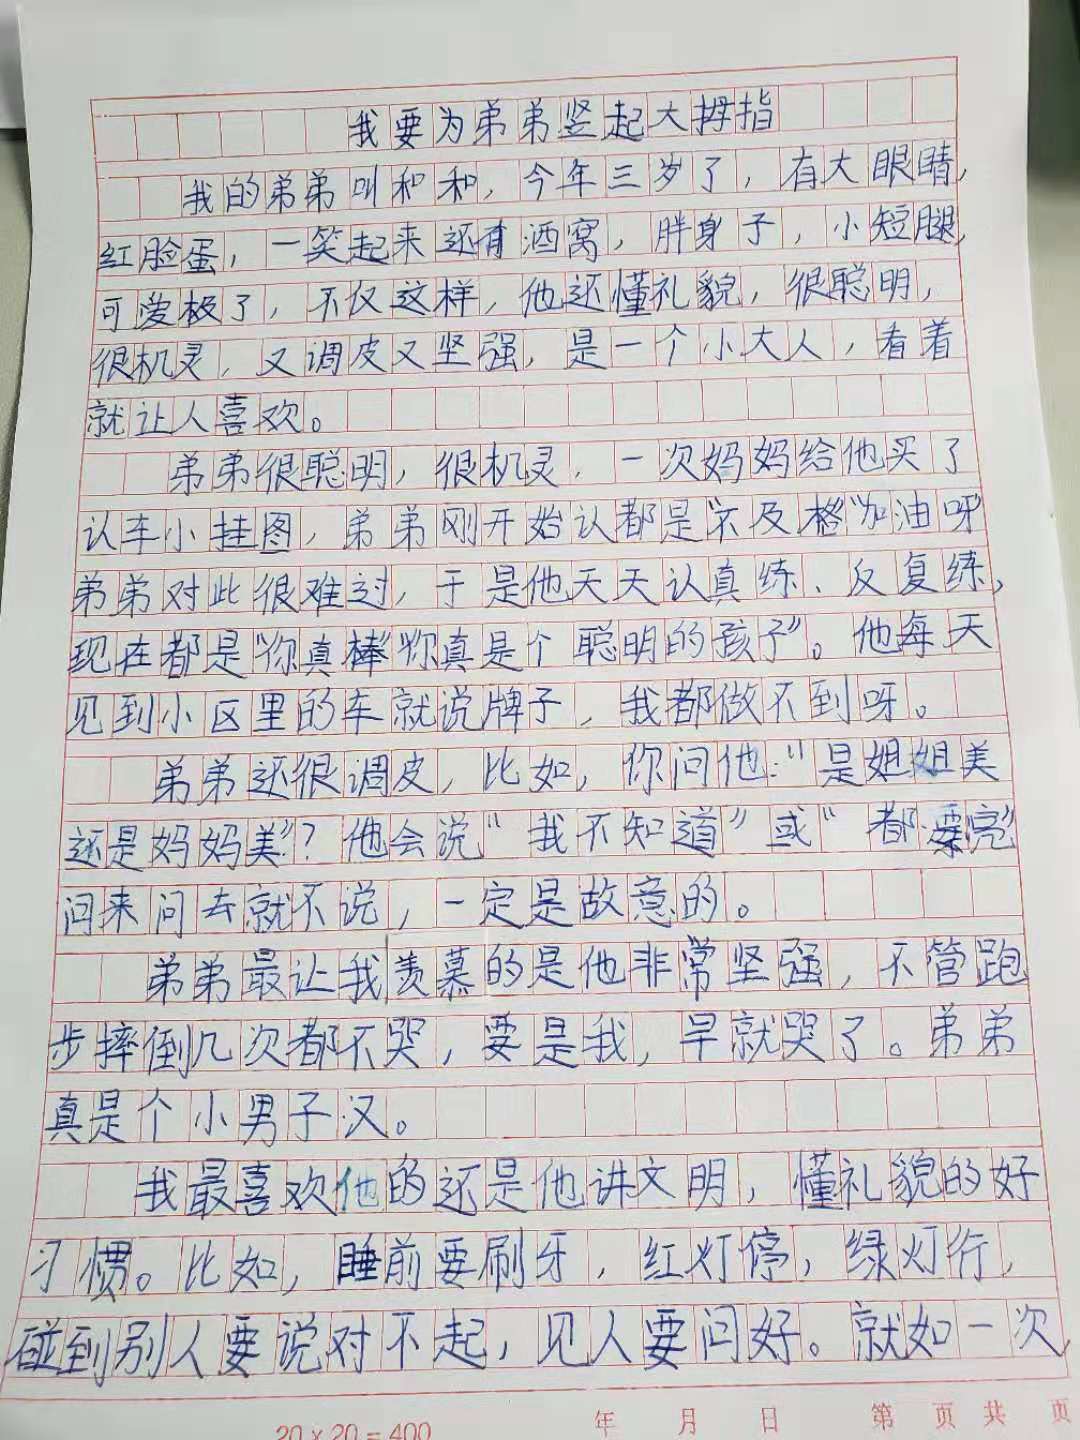 我要为弟弟竖起大拇指
我的弟弟叫和和，今年三岁了，有大眼睛，
红脸蛋，一笑起来还有酒窝，胖身子，小短腿，
可爱极了，不仅这样，他还懂礼貌，很聪明，
很机灵，又调皮又坚强，是一个小大人，看着
就让人喜欢。
弟弟很聪明，很机灵，一次妈妈给他买了
认车小挂图，弟弟刚开始认都是"不及格""加油呀"
弟弟对此很难过，于是他天天认真练、反复练，
现在都是"你真棒""你真是个聪明的孩子"。他每天
见到小区里的车就说牌子，我都做不到呀。
弟弟还很调皮，比如，你问他："是姐姐美
还是妈妈美"？他会说"我不知道"或"都漂亮"
问来问去就不说，一定是故意的。
弟弟最让我羡慕的是他非常坚强，不管跑
步摔倒几次都不哭，要是我，早就哭了。弟弟
真是个小男子汉。
我最喜欢他的还是他讲文明，懂礼貌的好
习惯。比如，睡前要刷牙，红灯停，绿灯行，
碰到别人要说对不起，见人要问好。就如一次，
20×20=400 年 月 日 第 页 共 页